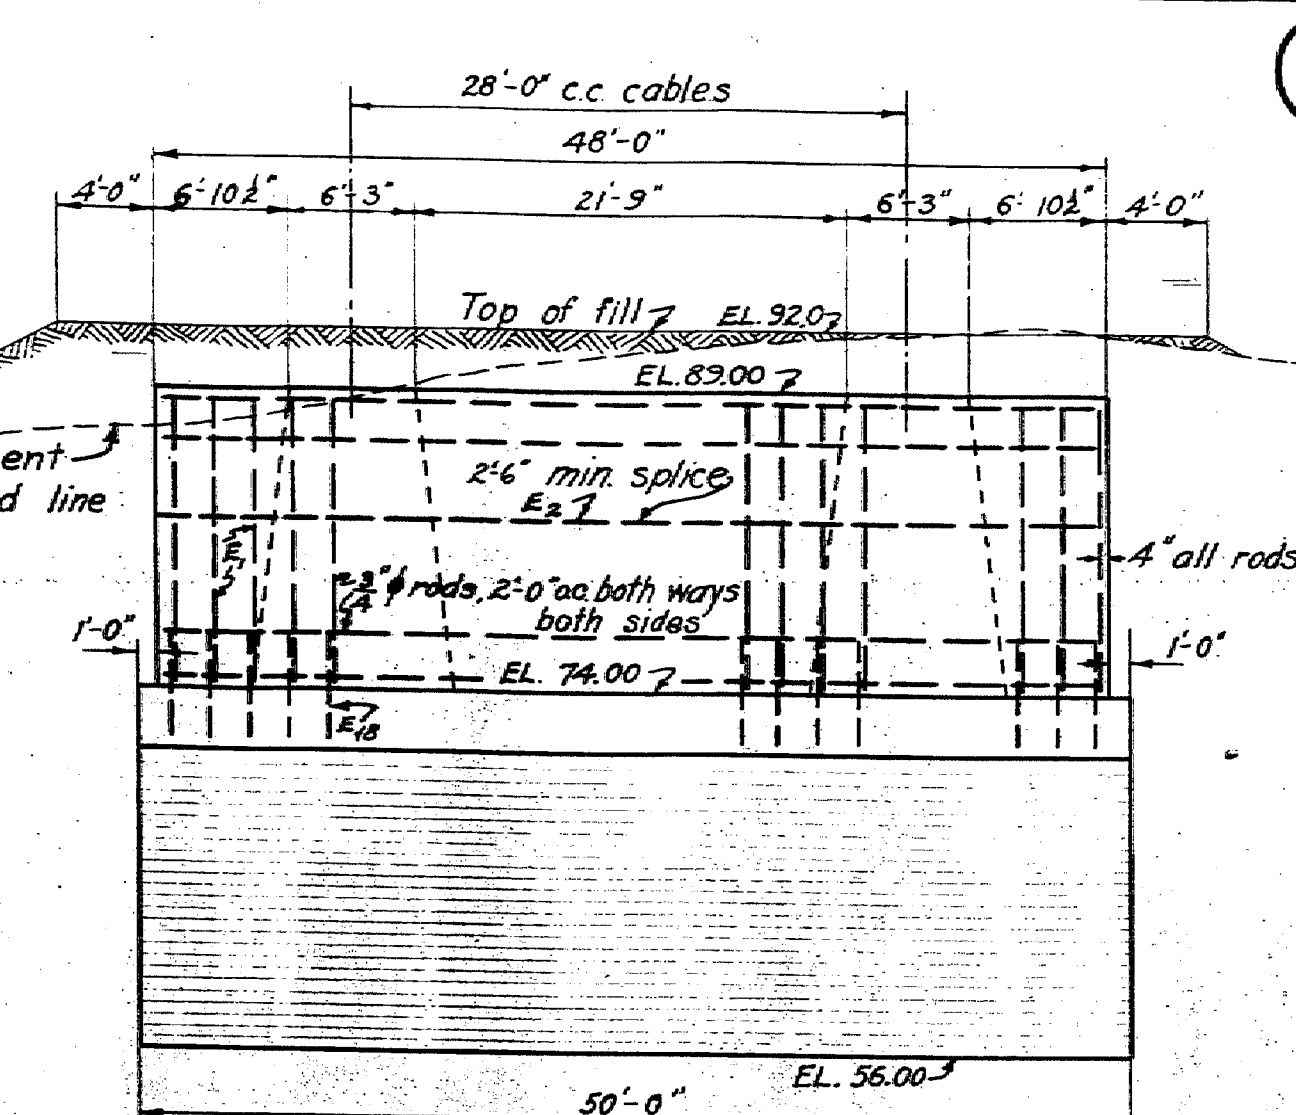 28'-0" c.c. cables
48'-0"
4'-0" 6'-10½" 6'-3" 21'-9" 6'-3" 6'-10½" 4'-0"
Top of fill EL. 92.0
EL. 89.00
ent
d line
2'-6" min. splice
E2
4" all rods
¾"ϕ rods, 2'-0" o.c. both ways
both sides
1'-0" 1'-0"
EL. 74.00
E18
EL. 56.00
50'-0"